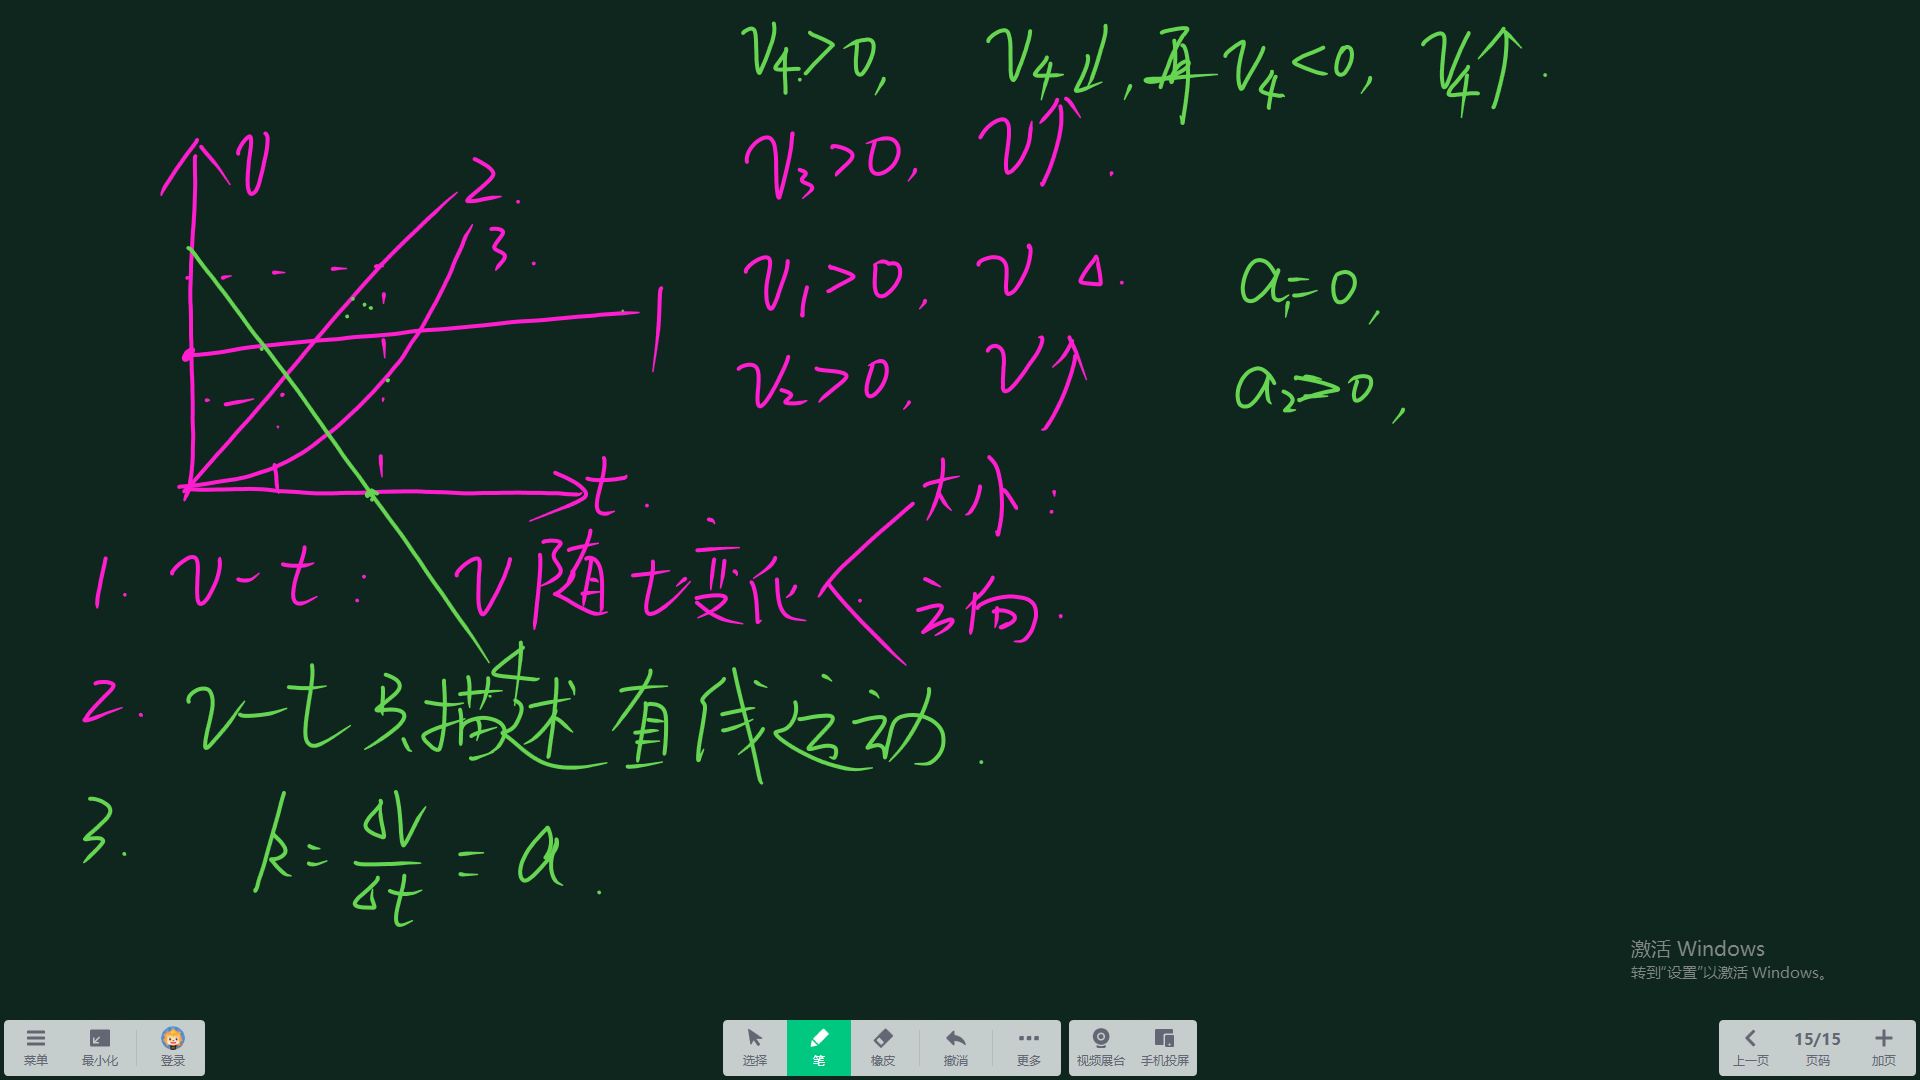 v₄>0, v₄↓, 再v₄<0, v₄↑.
v₃>0, v↑.
v₁>0, v △. a₁=0,
v₂>0, v↑ a₂>0,
v
2.
3.
1
t.
4
大小:
1. v-t: v随t变化
方向.
2. v-t只描述直线运动.
3. k=Δv/Δt=a.
激活 Windows
转到“设置”以激活 Windows。
菜单 最小化 登录 选择 笔 橡皮 撤消 更多 视频展台 手机投屏 上一页 15/15 页码 加页